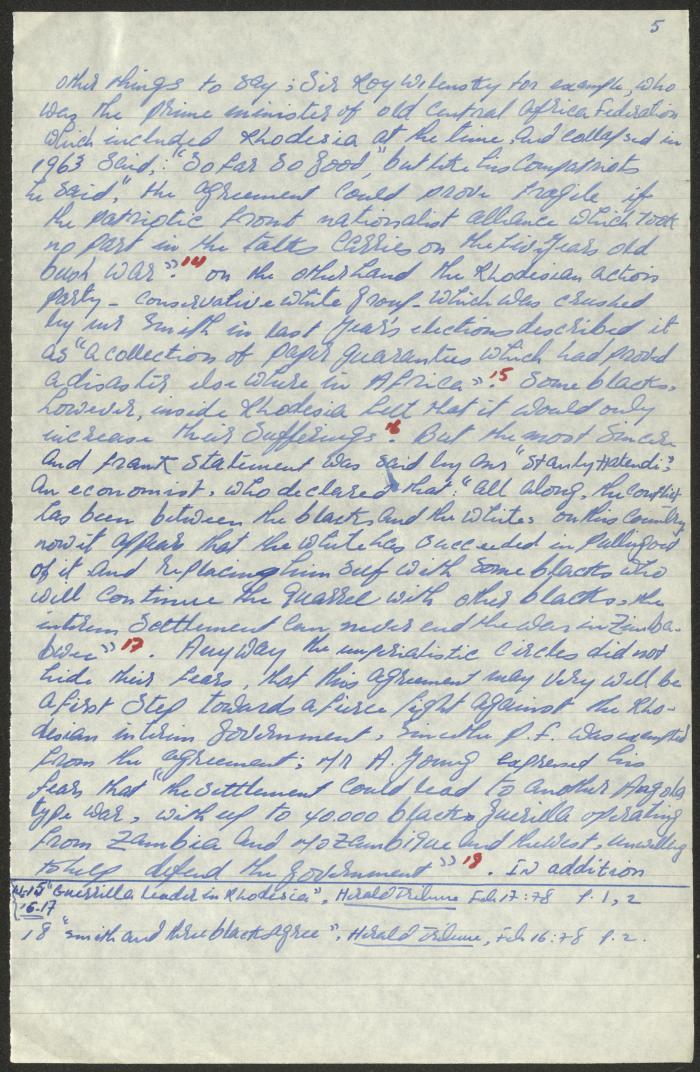 5
other things to say; Sir Roy Welensky for example, who
was the prime minister of old Central Africa Federation
which included Rhodesia at the time, and collapsed in
1963 said,: "So far So good," but like his Compatriots
he said," the agreement could prove fragile if
the patriotic front nationalist alliance which took
no part in the talks carries on the five years old
bush war".14 on the other hand the Rhodesian action
party - conservative white group - which was crushed
by mr Smith in last year's elections described it
as "a collection of paper guaranties which had proved
a disaster else where in Africa" 15 Some blacks,
however, inside Rhodesia felt that it would only
increase their Sufferings 16 But the most Sincere
and frank Statement was said by Mr "Stanly Hatendi",
an economist, who declared that: "all along, the conflict
has been between the blacks and the whites on this country
now it appear that the white has succeeded in pulling out
of it and replacing him self with some blacks who
will continue the quarrel with other blacks, the
interim Settlement can never end the war in Zimba-
bwe" 17. Any way the imperialistic circles did not
hide their fears, that this agreement may very well be
a first step towards a fierce fight against the Rho-
desian interim government, since the P.F. was exempted
from the agreement; Mr A. Young expressed his
fears that "the settlement could lead to another Angola
type war, with up to 40.000 blacks guerilla operating
from Zambia and Mozambique and the west, unwilling
to help defend the government" 18. IN addition
14-15 "Guerrilla Leader in Rhodesia", Herald Tribune Feb 17:78 P. 1, 2
16-17
18 "Smith and three black agree", Herald Tribune, Feb 16:78 P. 2.